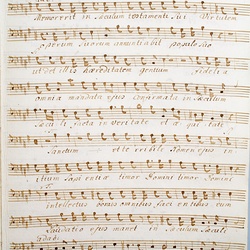 Memor erit in saeculum testamenti sui Virtutem
operum suorum annuntiabit populo suo
ut det illis haereditatem gentium fidelia
omnia mandata ejus Confirmata in saeculum
saeculi facta in veritate et aequitate
Sanctum et terribile Nomen ejus in
itium sapientiae timor Domini timor Domini
intellectus bonus omnibus facientibus eum
Laudatio ejus manet in saeculum saeculi